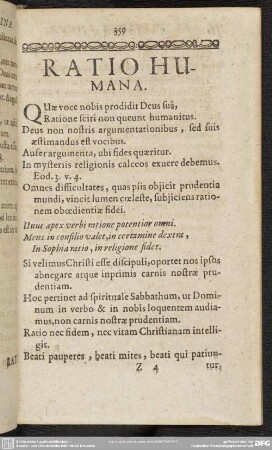 359
RATIO HU-
MANA.
QUæ voce nobis prodidit Deus suâ,
Ratione sciri non queunt humanitus.
Deus non nostris argumentationibus, sed suis
æstimandus est vocibus.
Aufer argumenta, ubi fides quæritur.
In mysteriis religionis calceos exuere debemus.
Eod. 3. v. 4.
Omnes difficultates, quas piis objicit prudentia
mundi, vincit lumen cœleste, subjiciens ratio-
nem obœdientiæ fidei.
Unus apex verbi ratione potentior omni.
Mens in consilio valet, in certamine dextra,
In Sophia ratio, in religione fides.
Si velimus Christi esse discipuli, oportet nos ipsos
abnegare atque inprimis carnis nostræ pru-
dentiam.
Hoc pertinet ad spirituale Sabbathum, ut Domi-
num in verbo & in nobis loquentem audia-
mus, non carnis nostræ prudentiam.
Ratio nec fidem, nec vitam Christianam intelli-
git.
Beati pauperes, beati mites, beati qui patiun-
Z 4 tur,